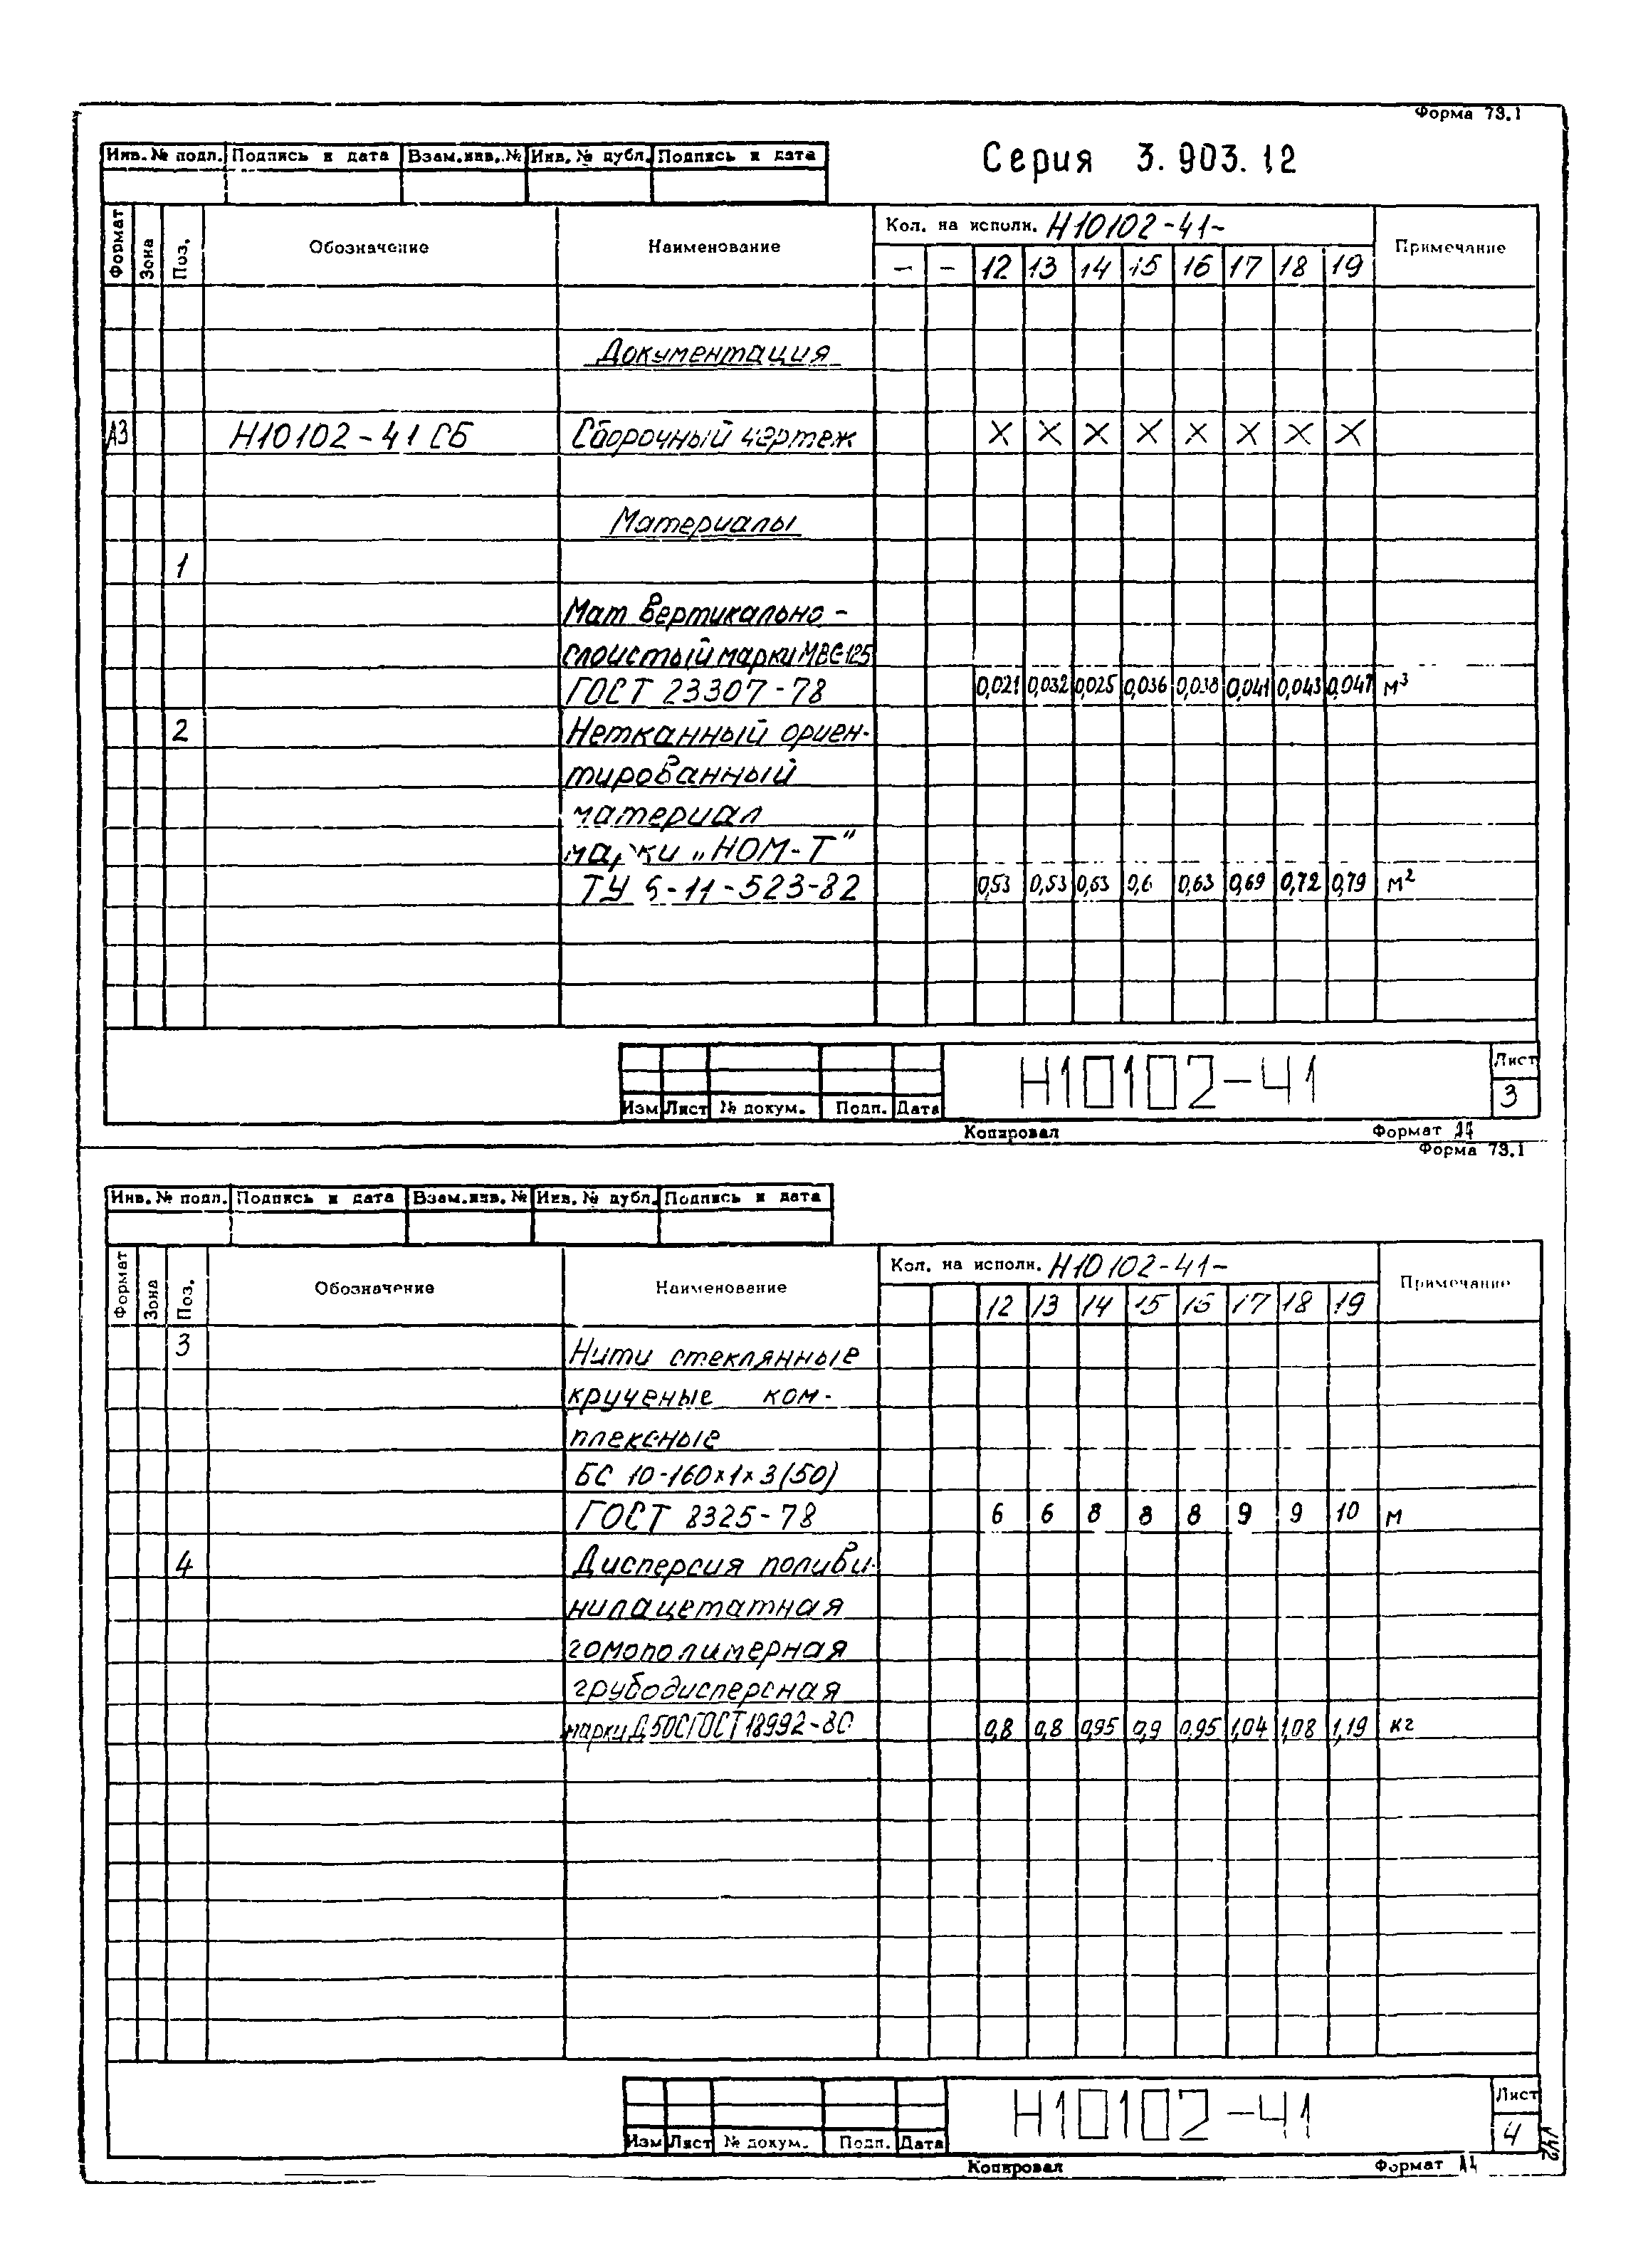 Форма 73.1
Инв. № подл. Подпись и дата Взам.инв.№ Инв. № дубл. Подпись и дата
Серия 3.903.12
Формат Зона Поз. Обозначение Наименование Кол. на исполн. Н10102-41- Примечание
- - 12 13 14 15 16 17 18 19
Документация
А3 Н10102-41 СБ Сборочный чертеж X X X X X X X X
Материалы
1
Мат вертикально-
слоистый марки МВС-125
ГОСТ 23307-78 0,021 0,032 0,025 0,036 0,038 0,041 0,043 0,047 м³
2 Нетканный ориен-
тированный
материал
марки „НОМ-Т"
ТУ 6-11-523-82 0,53 0,53 0,63 0,6 0,63 0,69 0,72 0,79 м²
Изм Лист № докум. Подп. Дата
Н10102-41
Лист
3
Копировал Формат
Форма 73.1
Инв. № подл. Подпись и дата Взам.инв. № Инв. № дубл. Подпись и дата
Формат Зона Поз. Обозначение Наименование Кол. на исполн. Н10102-41- Примечание
12 13 14 15 16 17 18 19
3 Нити стеклянные
крученые ком-
плексные
БС 10-160×1×3(50)
ГОСТ 8325-78 6 6 8 8 8 9 9 10 м
4 Дисперсия поливи-
нилацетатная
гомополимерная
грубодисперсная
марки Д 50С ГОСТ 18992-80 0,8 0,8 0,95 0,9 0,95 1,04 1,08 1,19 кг
Изм Лист № докум. Подп. Дата
Н10102-41
Лист
4
Копировал Формат